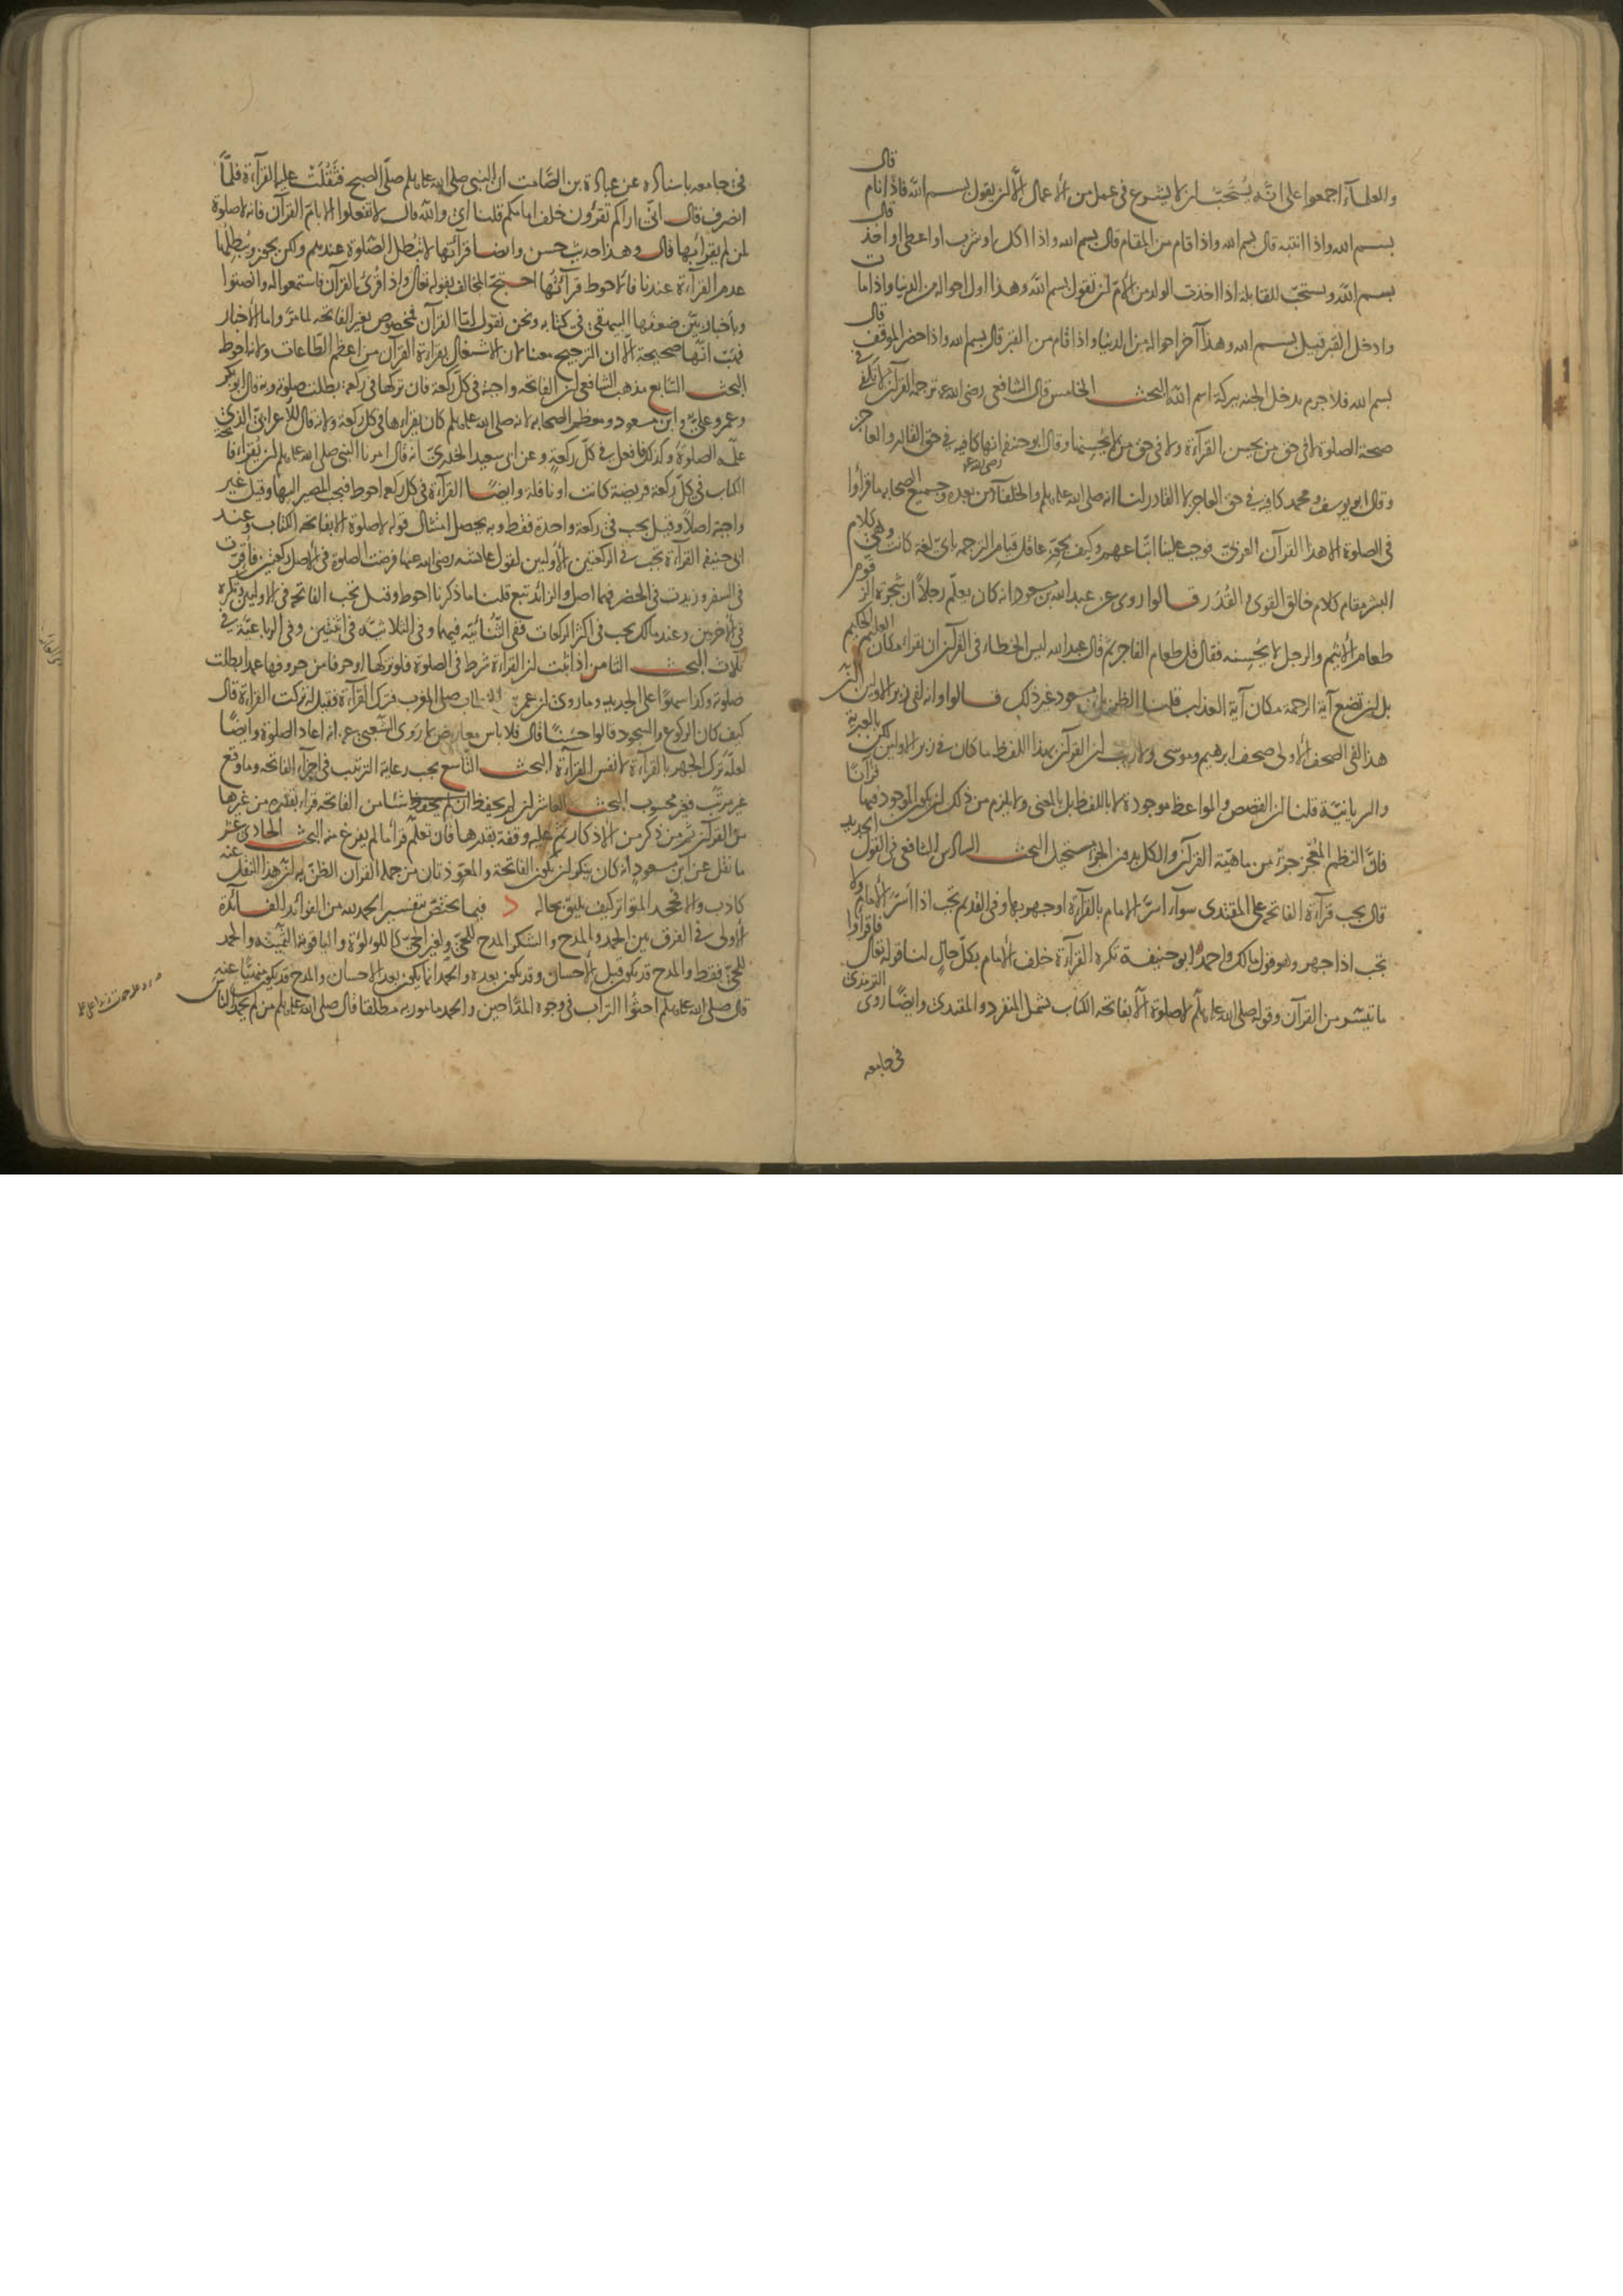 والعلماء اجمعوا على انه يستحب ان لا يشرع في عمل من الاعمال الا ان يقول بسم الله فاذا نام قال
بسم الله واذا انتبه قال بسم الله واذا قام من المقام قال بسم الله واذا اكل او شرب او اعطى او اخذ قال
بسم الله ويستحب للقابلة اذا اخذت الولد من الام ان تقول بسم الله وهذا اول احواله من الدنيا واذا مات
وادخل القبر قيل بسم الله وهذا آخر احواله من الدنيا واذا قام من القبر قال بسم الله واذا حضر الموقف قال
بسم الله فلا جرم يدخل الجنة ببركة اسم الله البحث الخامس قال الشافعي رضي الله عنه ترجمة القرآن لا تكفي في
صحة الصلوة لا في حق من يحسن القرآءة ولا في حق من لا يحسنها وقال ابو حنيفة انها كافية في حق القادر والعاجز
وقال ابو يوسف ومحمد كافية في حق العاجز لا القادر لنا انه صلى الله عليه وسلم والخلفاء من بعده رضي الله عنهم وجميع الصحابة ما قرأوا
في الصلوة الا هذا القرآن العربي فوجب علينا اتباعهم وكيف يجوز عاقل قيام الترجمة باي لغة كانت وهي كلام
البشر مقام كلام خالق القوى والقدر قالوا روى عن عبد الله بن مسعود انه كان يعلم رجلا ان شجرة الزقوم
طعام الاثيم والرجل لا يحسنه فقال قل طعام الفاجر ثم قال عبد الله ليس الخطاء في القرآن ان يقراء مكان العليم الحكيم
بل ان تضع آية الرحمة مكان آية العذاب قلنا الظن بابن مسعود غير ذلك قالوا وانه لفي زبر الاولين ان
هذا لفي الصحف الاولى صحف ابرهيم وموسى ولا ريب ان القرآن بهذا اللفظ ما كان في زبر الاولين لكن بالعبرية
والسريانية قلنا ان القصص والمواعظ موجودة لا باللفظ بل بالمعنى ولا يلزم من ذلك ان يكون الموجود فيها قرآنا
فان النظم المعجز جزء من ماهية القرآن والكل بدون الجزء مستحيل البحث السادس الشافعي في القول الجديد
قال يجب قرآءة الفاتحة على المقتدى سواء اسر الامام بالقرآءة او جهر بها وفي القديم تجب اذا اسر الامام ولا
تجب اذا جهر وهو قول مالك واحمد ابو حنيفة تكره القرآءة خلف الامام بكل حال لنا قوله تعالى فاقراوا
ما تيسر من القرآن وقوله صلى الله عليه وسلم لا صلوة الا بفاتحة الكتاب يشمل المنفرد والمقتدى وايضا روى الترمذي
في جامعه
في جامعه باسناده عن عبادة بن الصامت ان النبي صلى الله عليه وسلم صلى الصبح فثقلت عليه القرآءة فلما
انصرف قال اني اراكم تقرؤن خلف امامكم قلنا اي والله قال لا تفعلوا الا بام القرآن فانه لا صلوة
لمن لم يقرا بها قال وهذا حديث حسن وايضا قرآءتها لا تبطل الصلوة عندهم ولكن يجوز ويبطلها
عدم القرآءة عندنا فالاحوط قرآءتها احتج المخالف بقوله تعالى واذا قرئ القرآن فاستمعوا له وانصتوا
وباخبار بين ضعفها البيهقي في كتابه ونحن نقول اما القرآن فمخصوص بغير الفاتحة لما مر واما الاخبار
فهب انها صحيحة الا ان الترجيح معنا لان الاشتغال بقراءة القرآن من اعظم الطاعات ولانه احوط
البحث السابع مذهب الشافعي ان الفاتحة واجبة في كل ركعة فان تركها في ركعة بطلت صلوته وبه قال ابو بكر
وعمر وعلي وابن مسعود ومعظم الصحابة لانه صلى الله عليه وسلم كان يقراءها في كل ركعة ولانه قال للاعرابي الذي
علمه الصلوة وكذلك فافعل في كل ركعة وعن ابي سعيد الخدري انه قال امرنا النبي صلى الله عليه وسلم ان نقراء فاتحة
الكتاب في كل ركعة فريضة كانت او نافلة وايضا القرآءة في كل ركعة احوط فيجب المصير اليها وقيل غير
واجبة اصلا وقيل يجب في ركعة واحدة فقط وبه يحصل امتثال قوله لا صلوة الا بفاتحة الكتاب وعند
ابي حنيفة القرآءة تجب في الركعتين الاوليين لقول عائشة رضي الله عنها فرضت الصلوة في الاصل ركعتين فاقرت
في السفر وزيدت في الحضر فهما اصل والزائد تبع قلنا ما ذكرنا احوط وقيل تجب الفاتحة في الاوليين وتكره
في الاخريين وعند مالك يجب في اكثر الركعات ففي الثنائية فيهما وفي الثلاثية في اثنتين وفي الرباعية في
ثلاث البحث الثامن اذا ثبت ان القراءة شرط في الصلوة فلو تركها او حرفا من حروفها عمدا بطلت
صلوته وكذا سهوا على الجديد وما روى ان عمر بن الخطاب صلى المغرب فترك القرآءة فقيل له تركت القراءة قال
كيف كان الركوع والسجود قالوا حسنا قال فلا باس معارض بما روى الشعبي عنه انه اعاد الصلوة وايضا
لعله ترك الجهر بالقرآءة لا نفس القرآءة البحث التاسع يجب رعاية الترتيب في اجزاء الفاتحة وما وقع
غير مرتب فغير محسوب البحث العاشر ان لم يحفظ شئا من الفاتحة قراء بقدره من غيرها
من القرآن ثم من ذكر من الاذكار ثم عليه وقفة بقدرها فان تعلم قرأ ما لم يفرغ منه البحث الحادي عشر
ما نقل عن ابن مسعود انه كان ينكر ان تكون الفاتحة والمعوذتان من جملة القرآن الظن به ان هذا النقل عنه
كاذب والا فجحد المتواتر كيف يليق بحاله فيما يختص بتفسير الحمد لله من الفوائد الفائدة
الاولى في الفرق بين الحمد والمدح والشكر المدح للحي ولغير الحي كاللؤلؤة والياقوتة الثمينة والحمد
للحي فقط والمدح قد يكون قبل الاحسان وقد يكون بعده والحمد انما يكون بعد الاحسان والمدح قد يكون منهيا عنه
قال صلى الله عليه وسلم احثوا التراب في وجوه المداحين والحمد مامور به مطلقا قال صلى الله عليه وسلم من لم يحمد الناس